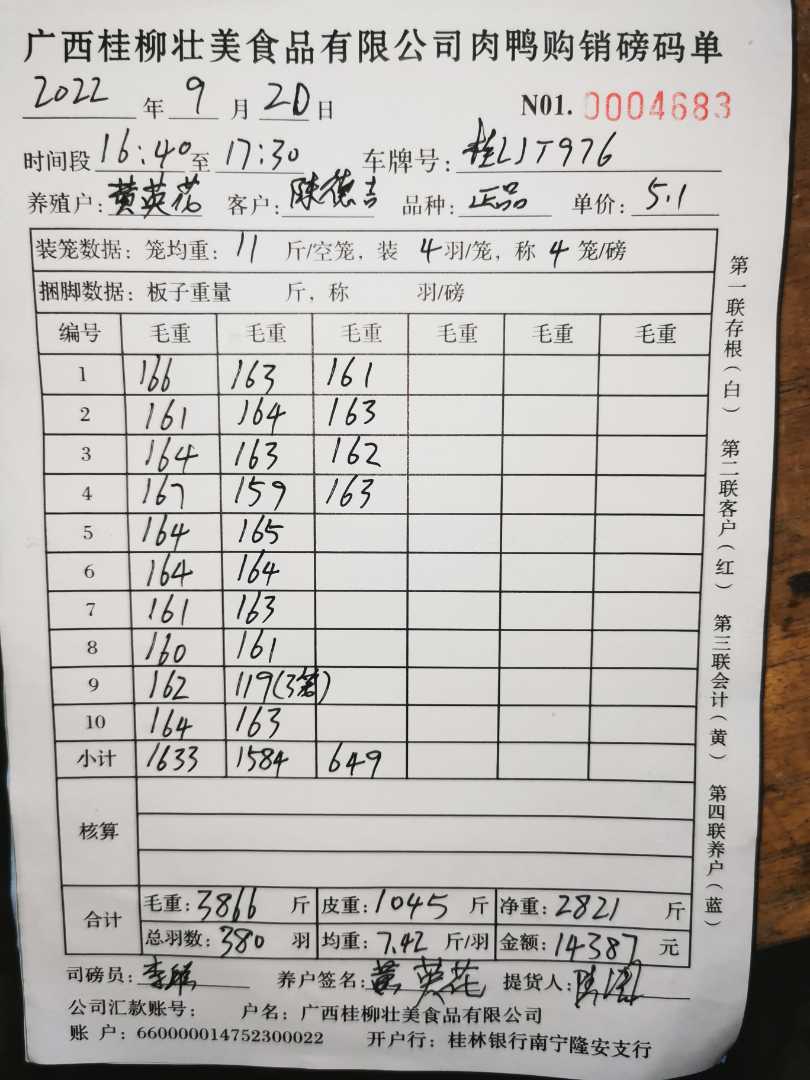 广西桂柳壮美食品有限公司肉鸭购销磅码单
2022 年 9 月 20 日 N01. 0004683
时间段 16:40 至 17:30 车牌号: 桂LJT976
养殖户: 黄英花 客户: 陈德吉 品种: 正品 单价: 5.1
装笼数据: 笼均重: 11 斤/空笼, 装 4 羽/笼, 称 4 笼/磅
捆脚数据: 板子重量 斤, 称 羽/磅
编号 毛重 毛重 毛重 毛重 毛重 毛重
1 166 163 161
2 161 164 163
3 164 163 162
4 167 159 163
5 164 165
6 164 164
7 161 163
8 160 161
9 162 119(3笼)
10 164 163
小计 1633 1584 649
核算
合计 毛重: 3866 斤 皮重: 1045 斤 净重: 2821 斤
总羽数: 380 羽 均重: 7.42 斤/羽 金额: 14387 元
司磅员: 李 养户签名: 黄英花 提货人: 陈
公司汇款账号: 户名: 广西桂柳壮美食品有限公司
账 户: 660000014752300022 开户行: 桂林银行南宁隆安支行
第一联存根(白) 第二联客户(红) 第三联会计(黄) 第四联养户(蓝)